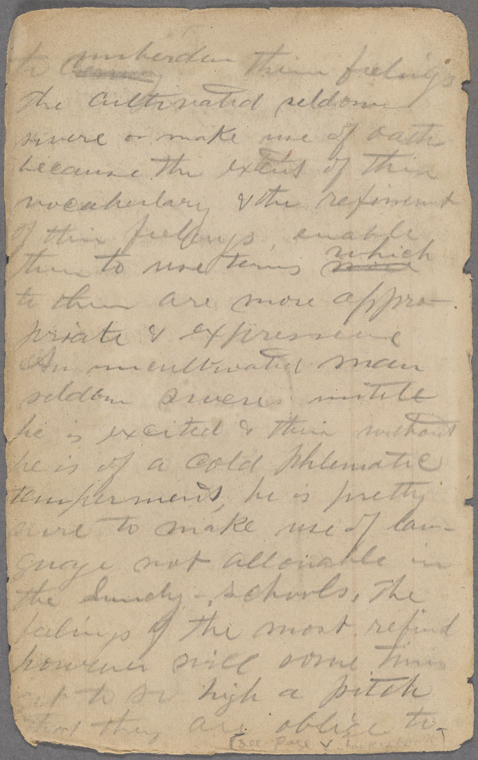 to unburden thier feelings
The cultivated seldom
swere or make use of oaths
because the extent of thier
vocabulary & the refinment
of thier feelings enable
them to use terms which
to them are more appro-
priate & expressive
An uncultivated man
seldom sweres untill
he is excited & then without
he is of a cold phlematic
temperment, he is pretty
sure to make use of lan-
guage not allowable in
the Sundy-schools, the
feelings of the most refind
however will some times
get to so high a pitch
that they are oblige to-
(see page